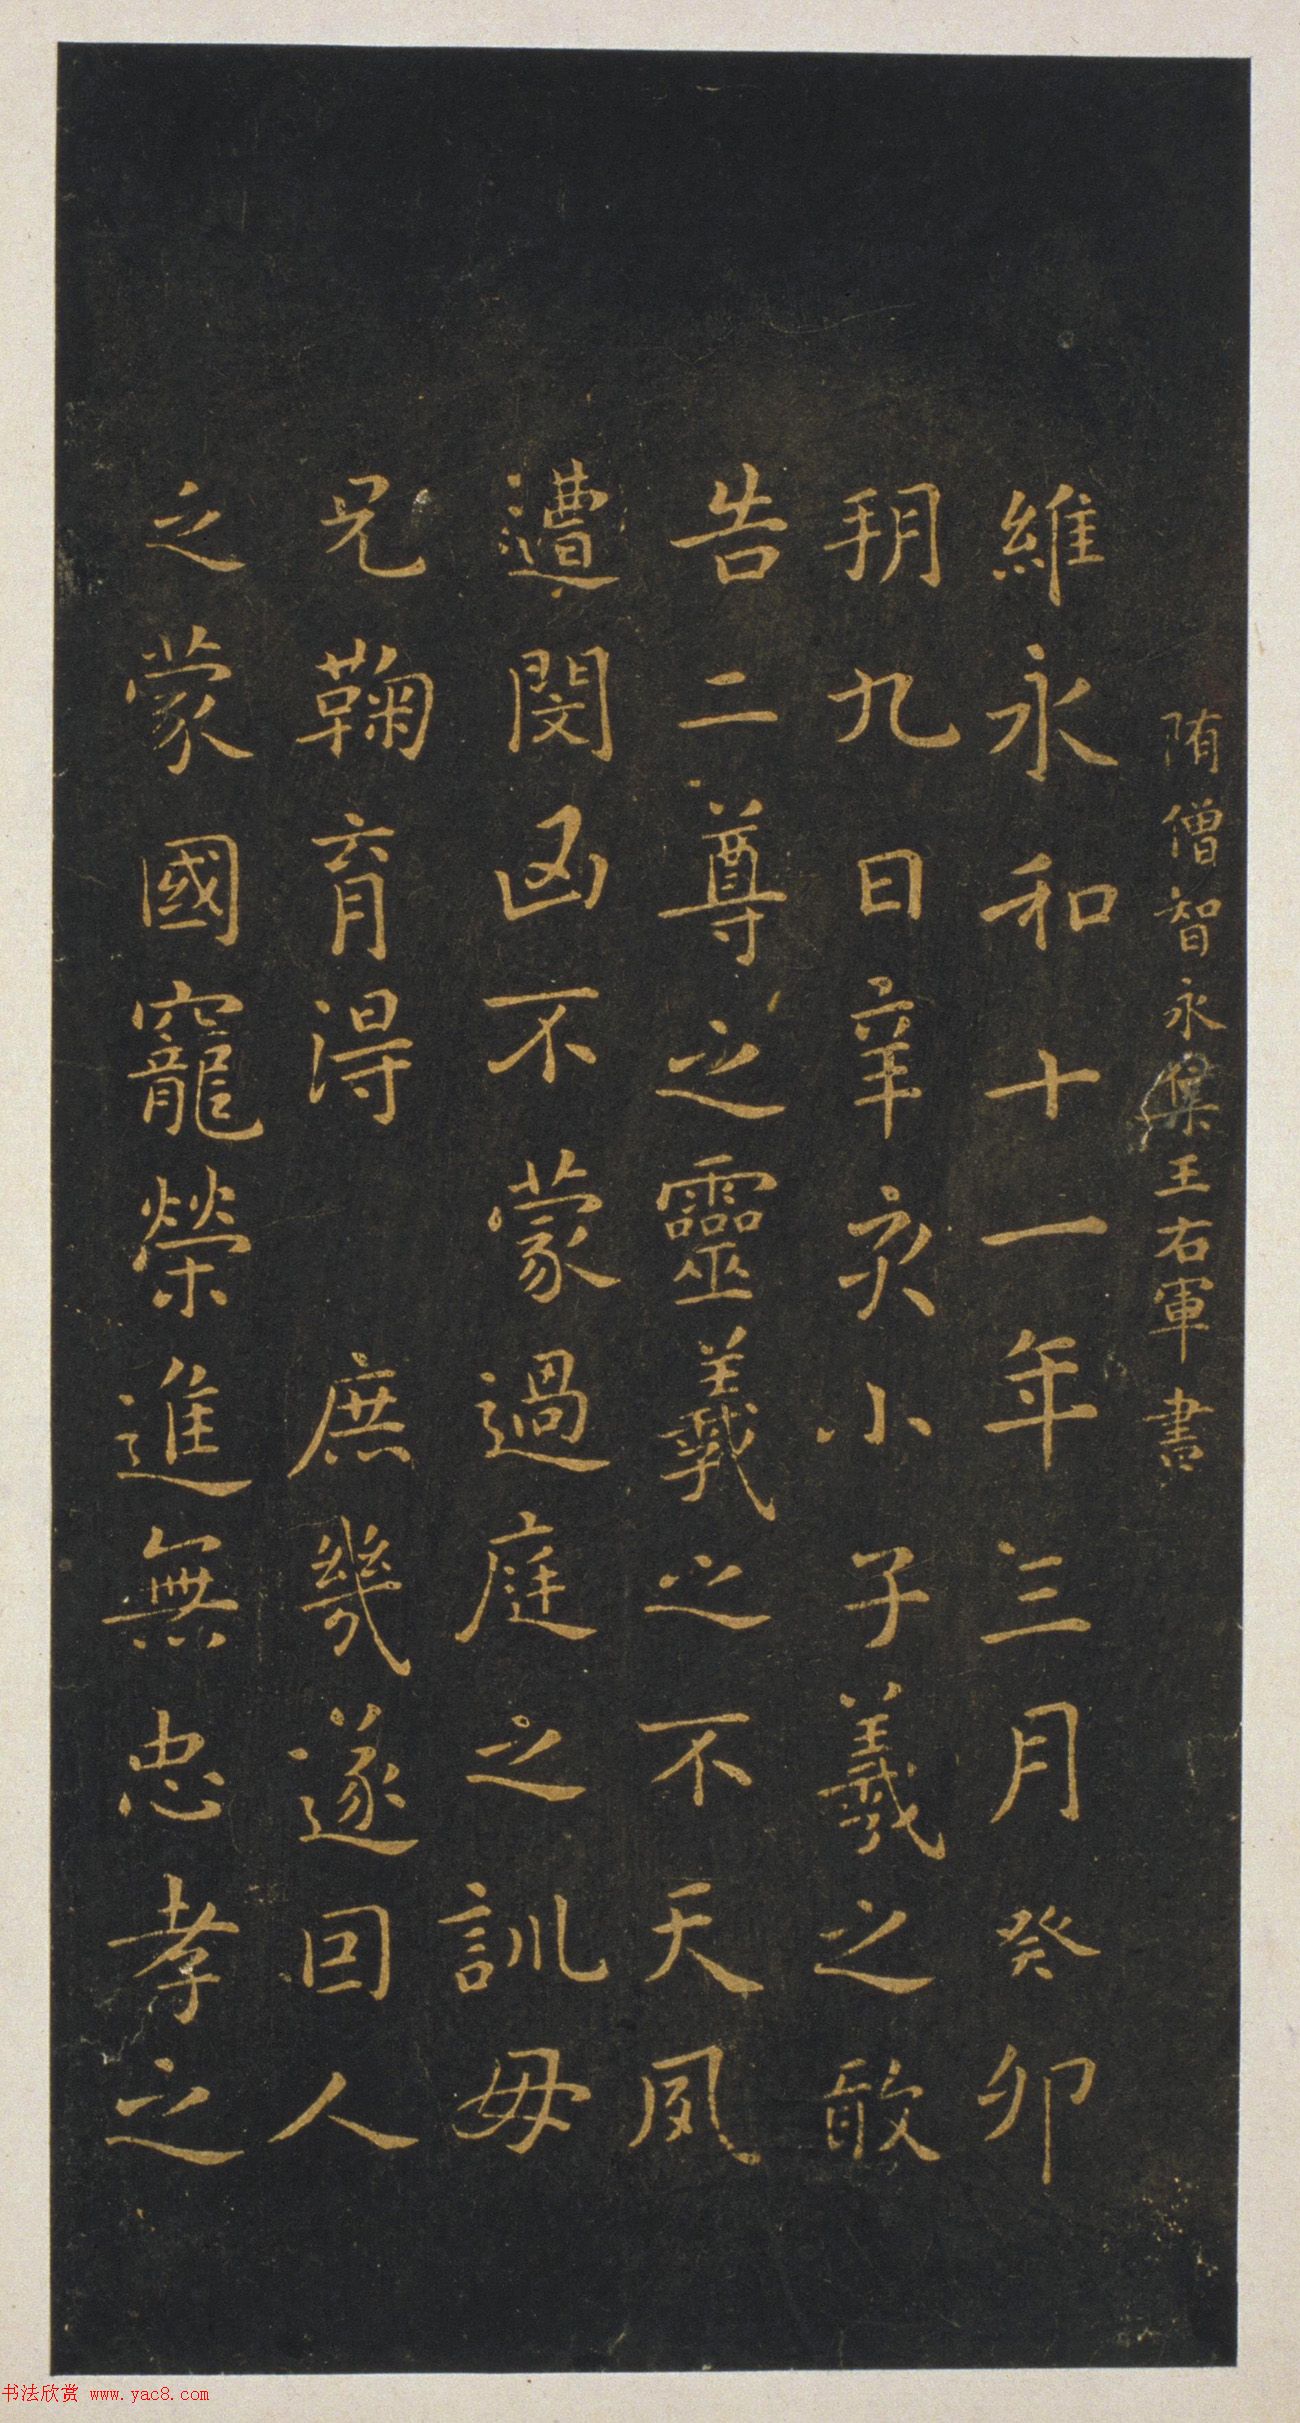 隋僧智永集王右軍書
維永和十一年三月癸卯
朔九日辛亥小子羲之敢
告二尊之靈羲之不天夙
遭閔凶不蒙過庭之訓母
兄鞠育得庶幾遂因人
之蒙國寵榮進無忠孝之
书法欣赏 www.yac8.com